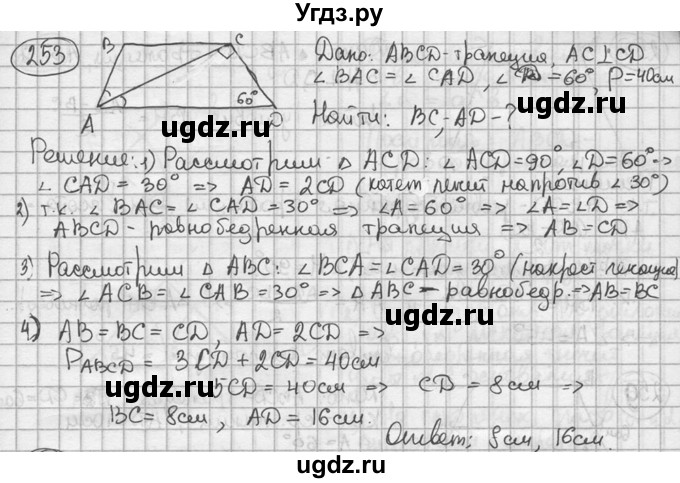 Угдз.ру
253
B C
Дано: ABCD-трапеция, AC⊥CD
∠BAC = ∠CAD, ∠D = 60°, P=40см
60°
A D
Найти: BC, AD - ?
ugdz.ru ugdz.ru
Решение: 1) Рассмотрим △ ACD: ∠ACD=90°, ∠D=60° =>
∠CAD = 30° => AD = 2CD (катет лежит напротив ∠30°)
2) т.к. ∠BAC = ∠CAD = 30° => ∠A = 60° => ∠A = ∠D =>
ABCD - равнобедренная трапеция => AB = CD
ugdz.ru ugdz.ru
3) Рассмотрим △ ABC: ∠BCA = ∠CAD = 30° (накрест лежащие)
=> ∠ACB = ∠CAB = 30° => △ABC - равнобедр. => AB = BC
ugdz.ru ugdz.ru
4) AB = BC = CD, AD = 2CD =>
P ABCD = 3CD + 2CD = 40см
5CD = 40см => CD = 8см =>
BC = 8см, AD = 16см.
Ответ: 8см, 16см.
ugdz.ru ugdz.ru